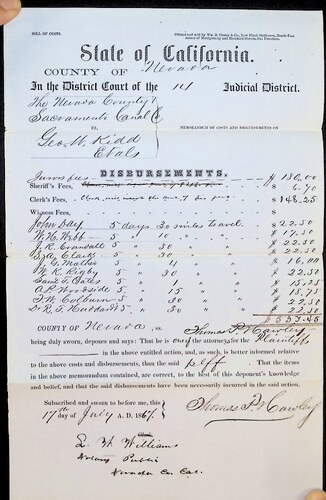 BILL OF COSTS.
State of California.
COUNTY OF Nevada
In the District Court of the 14 Judicial District.
The Nevada County &
Sacramento Canal Co
vs.
Geo. W. Kidd
Et als
MEMORANDUM OF COSTS AND DISBURSEMENTS ON
DISBURSEMENTS.
Jurors fees $ 180,00
Sheriff's Fees, $ 6.70
Clerk's Fees, $ 148,25
Witness Fees,
John Day 5 days 30 miles travel $ 22,50
W. H. Webb 5 " 10 " $ 17,50
J. R. Crandall 5 " 30 " $ 22,50
E. A. Clark 5 " 30 " $ 22,50
J. G. Mather 5 " $ 16,00
W. K. Rigby 5 " 30 $ 22,50
5 " 1
A. P. Woodside 5 " 15 "
D. W. Colburn 5 " 30 " 22.50
5 " 30 " 22.50
COUNTY OF Nevada, ss. Thomas P. Hawley
being duly sworn, deposes and says: That he is one of the attorneys for the Plaintiffs
in the above entitled action, and, as such, is better informed relative
to the above costs and disbursements, than the said plff. That the items
in the above memorandum contained, are correct, to the best of this deponent's knowledge
and belief, and that the said disbursements have been necessarily incurred in the said action.
Subscribed and sworn to before me, this
17th day of July A. D. 186
Thomas P. Hawley
L. W. Williams
Notary Public
Nevada Co. Cal.